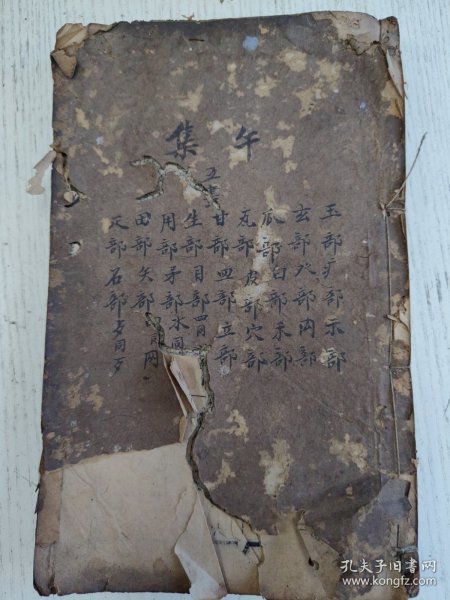 午集
五
玉部疒部示部
玄部癶部禸部
瓜部白部禾部
瓦部皮部穴部
甘部皿部立部
生部目部
用部矛部氺同
田部矢部
疋部石部歺同歹
孔夫子旧书网
www.kongfz.com